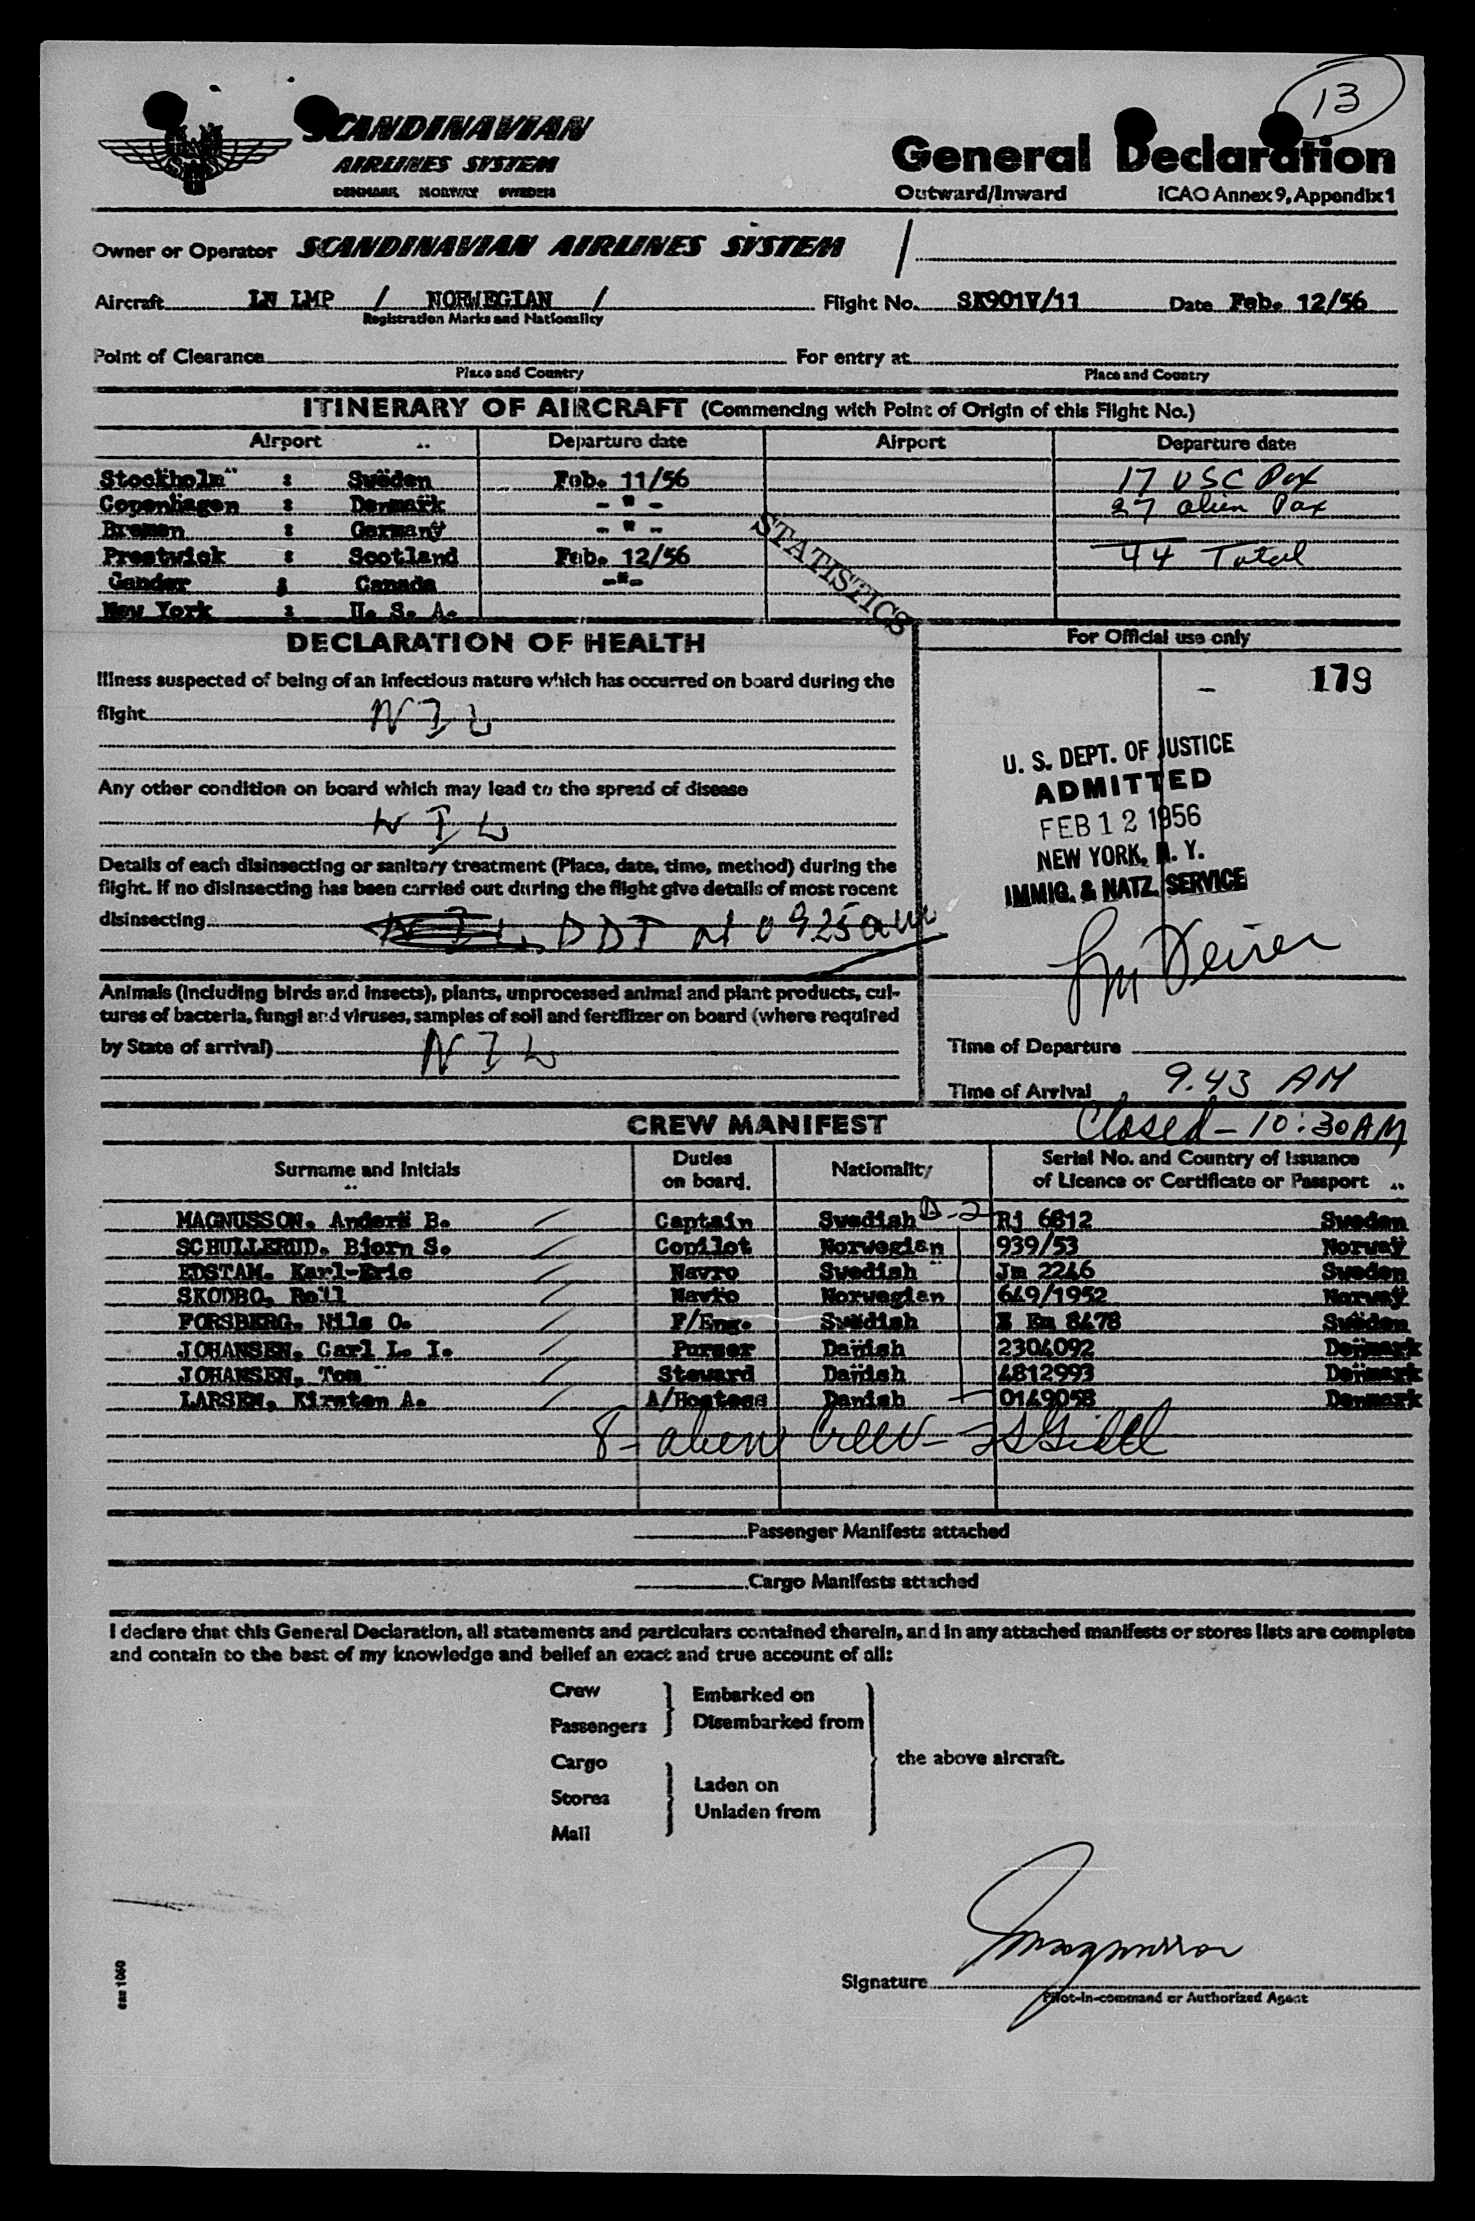 13
SCANDINAVIAN
AIRLINES SYSTEM
DENMARK NORWAY SWEDEN
General Declaration
Outward/Inward ICAO Annex 9, Appendix 1
Owner or Operator SCANDINAVIAN AIRLINES SYSTEM /
Aircraft LN LMP / NORWEGIAN / Flight No. SK901V/11 Date Feb. 12/56
Registration Marks and Nationality
Point of Clearance For entry at
Place and Country Place and Country
ITINERARY OF AIRCRAFT (Commencing with Point of Origin of this Flight No.)
Airport Departure date Airport Departure date
Stockholm : Sweden Feb. 11/56 17 USC Pax
Copenhagen : Denmark - " - 27 alien Pax
Bremen : Germany - " -
Prestwick : Scotland Feb. 12/56 44 Total
Gander : Canada -"-
New York : U. S. A.
STATISTICS
DECLARATION OF HEALTH
For Official use only
Illness suspected of being of an infectious nature which has occurred on board during the
flight NIL
- 179
Any other condition on board which may lead to the spread of disease
NIL
U. S. DEPT. OF JUSTICE
ADMITTED
FEB 12 1956
NEW YORK, N. Y.
IMMIG. & NATZ. SERVICE
Details of each disinsecting or sanitary treatment (Place, date, time, method) during the
flight. If no disinsecting has been carried out during the flight give details of most recent
disinsecting NIL DDT at 0925 am
Animals (including birds and insects), plants, unprocessed animal and plant products, cul-
tures of bacteria, fungi and viruses, samples of soil and fertilizer on board (where required
by State of arrival) NIL
Time of Departure
Time of Arrival 9.43 AM
Closed - 10:30 AM
CREW MANIFEST
Surname and Initials Duties on board. Nationality Serial No. and Country of Issuance of Licence or Certificate or Passport
MAGNUSSON, Anders B. Captain Swedish D-2 Rj 6812 Sweden
SCHULLERUD, Bjorn S. Copilot Norwegian 939/53 Norway
EDSTAM, Karl-Eric Navro Swedish Jm 2246 Sweden
SKODBO, Rolf Navro Norwegian 649/1952 Norway
FORSBERG, Nils O. F/Eng. Swedish Em 8478 Sweden
JOHANSEN, Carl L. I. Purser Danish 2304092 Denmark
JOHANSEN, Tom Steward Danish 4812993 Denmark
LARSEN, Kirsten A. A/Hostess Danish 0149058 Denmark
8 - alien Crew -
Passenger Manifests attached
Cargo Manifests attached
I declare that this General Declaration, all statements and particulars contained therein, and in any attached manifests or stores lists are complete
and contain to the best of my knowledge and belief an exact and true account of all:
Crew Embarked on
Passengers Disembarked from
Cargo the above aircraft.
Stores Laden on
Unladen from
Mail
sas 1060
Signature Magnusson
Pilot-in-command or Authorized Agent